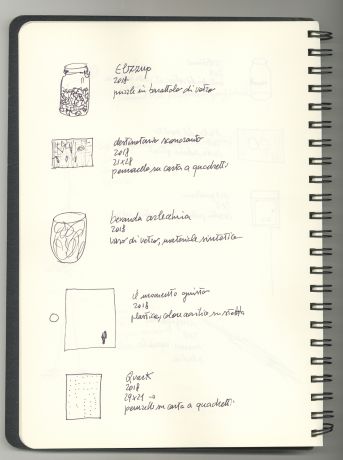 2018
puzzle in barattolo di vetro
destinatario sconosciuto
2018
21x28
pennarello su carta a quadretti
2018
vaso di vetro, materiale sintetico
il momento giusto
2018
plastica, colore acrilico su
Quark
2018
29x21
pennarello su carta a quadretti